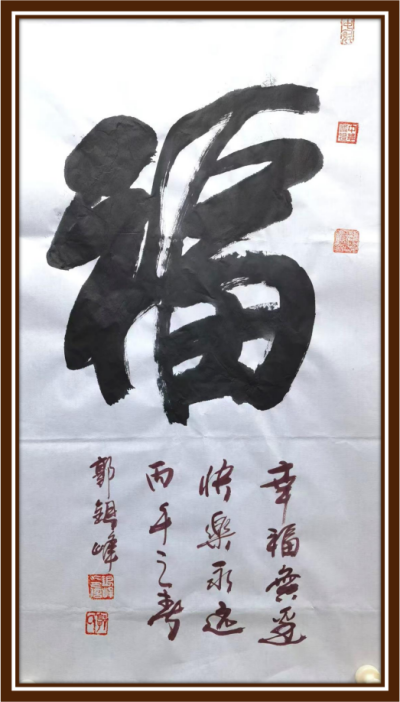 福
幸福無邊
快樂永遠
丙午之春
郭峰